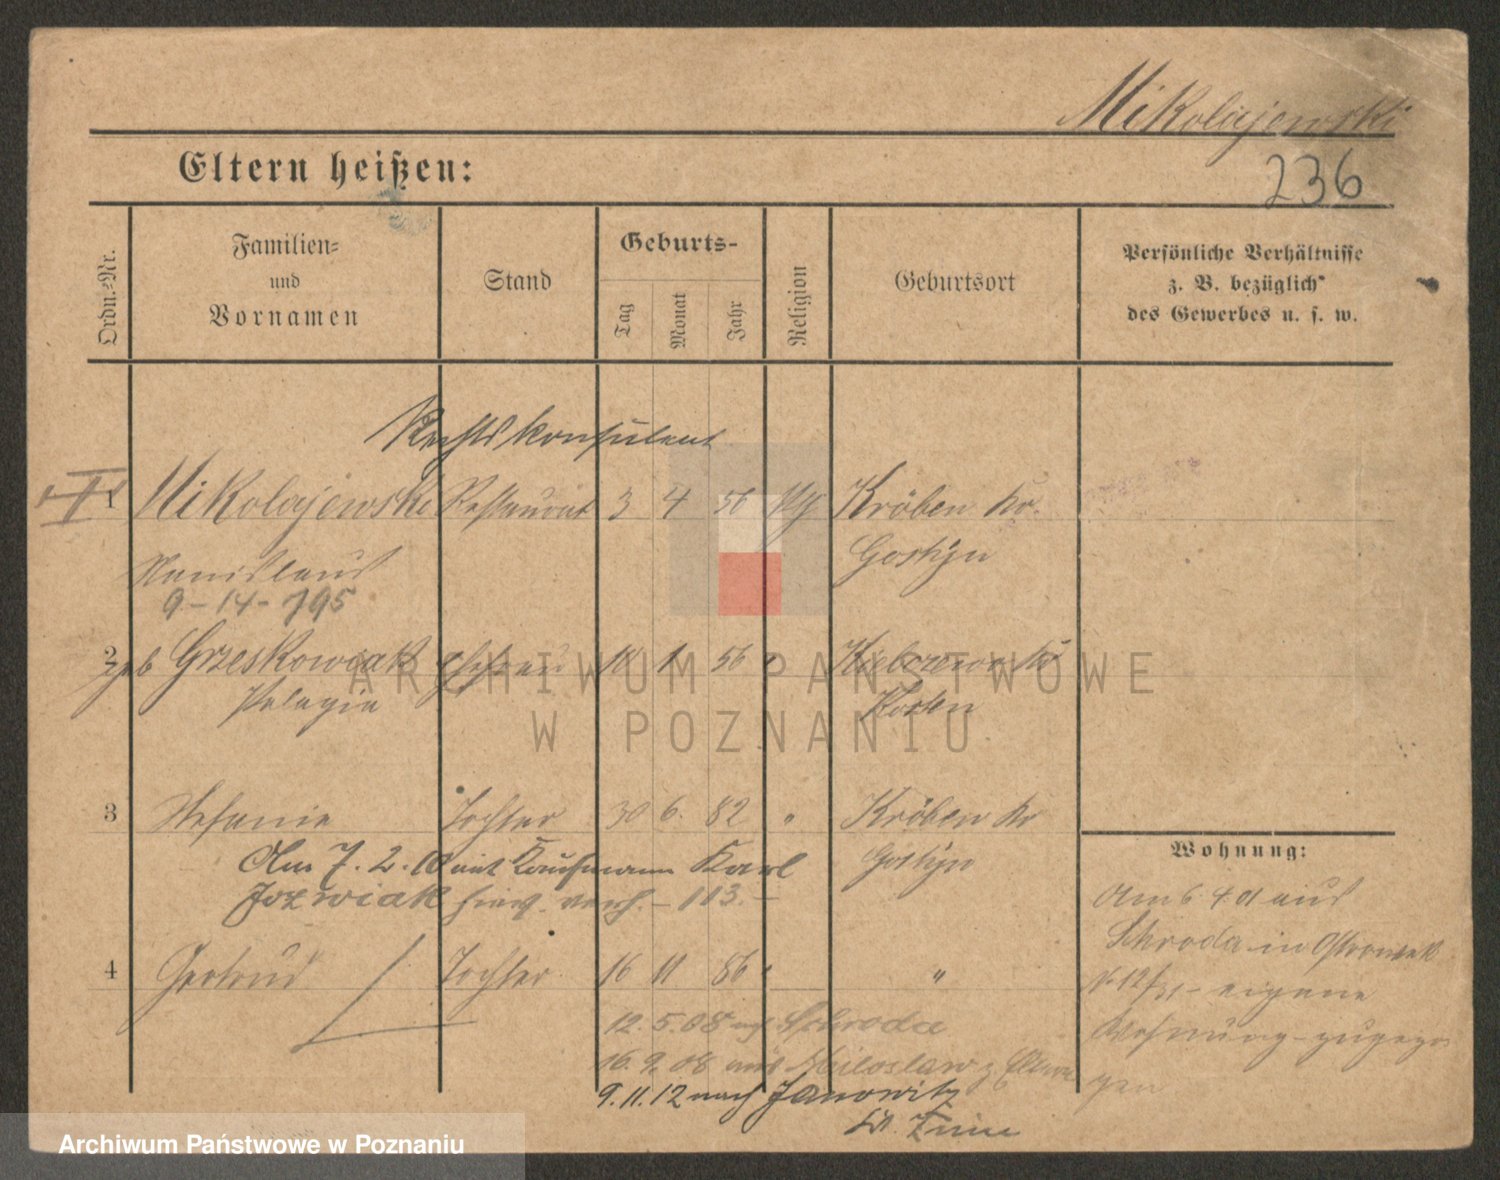 Mikolajewski
236
Eltern heißen:
Ordn.-Nr.
Familien- und Vornamen
Stand
Geburts-
Tag
Monat
Jahr
Religion
Geburtsort
Persönliche Verhältnisse
z. B. bezüglich
des Gewerbes u. s. w.
Rechtskonsulent
1 Mikolajewski Restaurat 3 4 56 Kröben Kr.
Stanislaus Gostyn
9-14-195
2 geb Grzeskowiak Ehefrau 10 1 56 " Kr
Pelagia Kosten
3 Stefanie Tochter 30 6. 82 " Kröben Kr
Am 7. 2. 10 mit Kaufmann Karl Gostyn
Jozwiak hiers. verh. - 113. -
4 Gertrud Tochter 16 11 86 " "
12. 5. 08 nach Schroda
16. 9. 08 aus Miloslaw z. Eltern
9. 11. 12 nach Janowitz
Kr. Znin
Wohnung:
Am 6 4 01 aus
Schroda in Ostrowek
No 12/ - eigene
Wohnung - zugezo
gen
ARCHIWUM PAŃSTWOWE
W POZNANIU
Archiwum Państwowe w Poznaniu